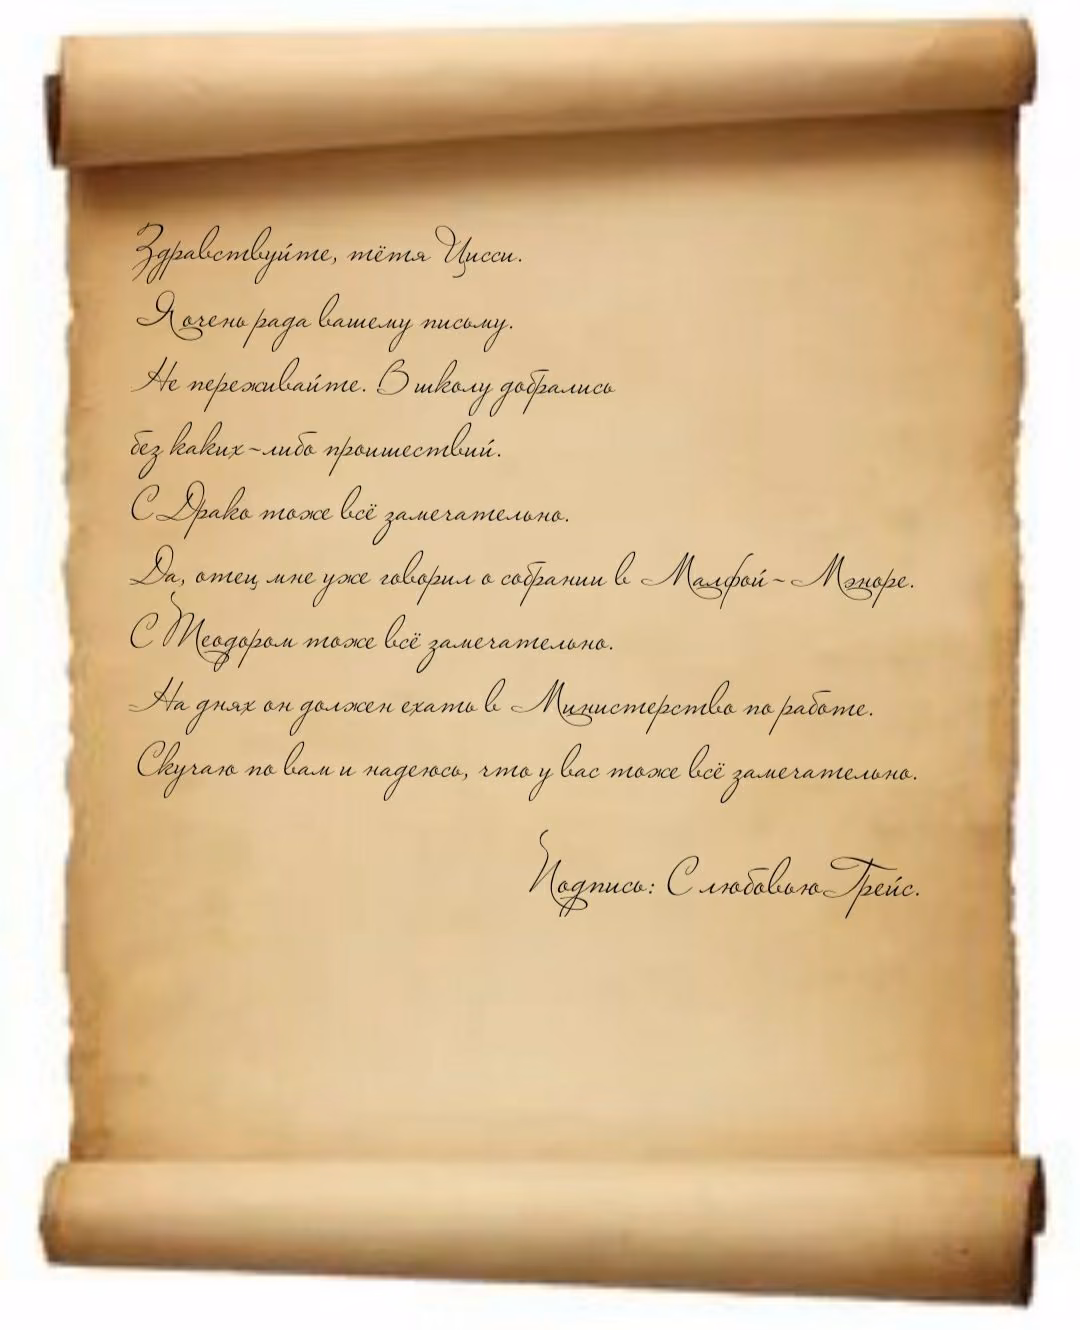 Здравствуйте, тётя Цисси.
Я очень рада вашему письму.
Не переживайте. В школу добрались
без каких-либо проишествий.
С Драко тоже всё замечательно.
Да, отец мне уже говорил о собрании в Малфой-Мэноре.
С Теодором тоже всё замечательно.
На днях он должен ехать в Министерство по работе.
Скучаю по вам и надеюсь, что у вас тоже всё замечательно.
Подпись: С любовью Грейс.